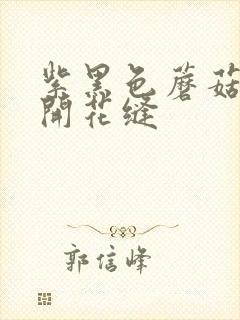 紫黑色蘑菇
開花缝
郭信峰